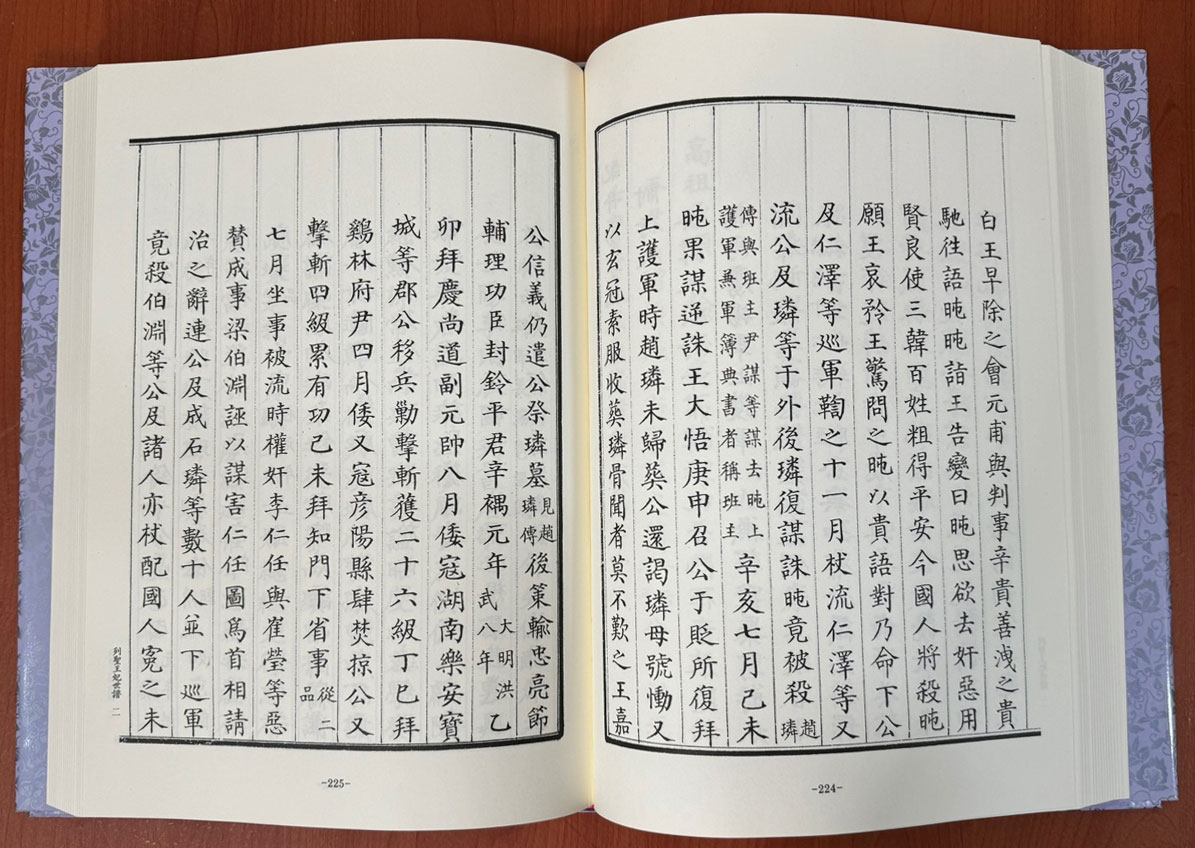 白王早除之會元甫與判事辛貴善洩之貴
馳徃語旽旽詣王告變曰旽思欲去奸惡用
賢良使三韓百姓粗得平安今國人將殺旽
願王哀矜王驚問之旽以貴語對乃命下公
及仁澤等巡軍鞫之十一月杖流仁澤等又
流公及璘等于外後璘復謀誅旽竟被殺趙璘
傳與班主尹謀等謀去旽上護軍兼軍簿典書者稱班主辛亥七月己未
旽果謀逆誅王大悟庚申召公于貶所復拜
上護軍時趙璘未歸葬公還謁璘母號慟又
以玄冠素服收葬璘骨聞者莫不歎之王嘉
-224-
公信義仍遣公祭璘墓見趙璘傳後策輸忠亮節
輔理功臣封鈴平君辛禑元年大明洪武八年乙
卯拜慶尚道副元帥八月倭寇湖南樂安寶
城等郡公移兵勦擊斬獲二十六級丁巳拜
鷄林府尹四月倭又寇彦陽縣肆焚掠公又
擊斬四級累有功己未拜知門下省事從二品
七月坐事被流時權奸李仁任與崔瑩等惡
贊成事梁伯淵誣以謀害仁任圖爲首相請
治之辭連公及成石璘等數十人並下巡軍
竟殺伯淵等公及諸人亦杖配國人寃之未
列聖王妃世譜 二
-225-